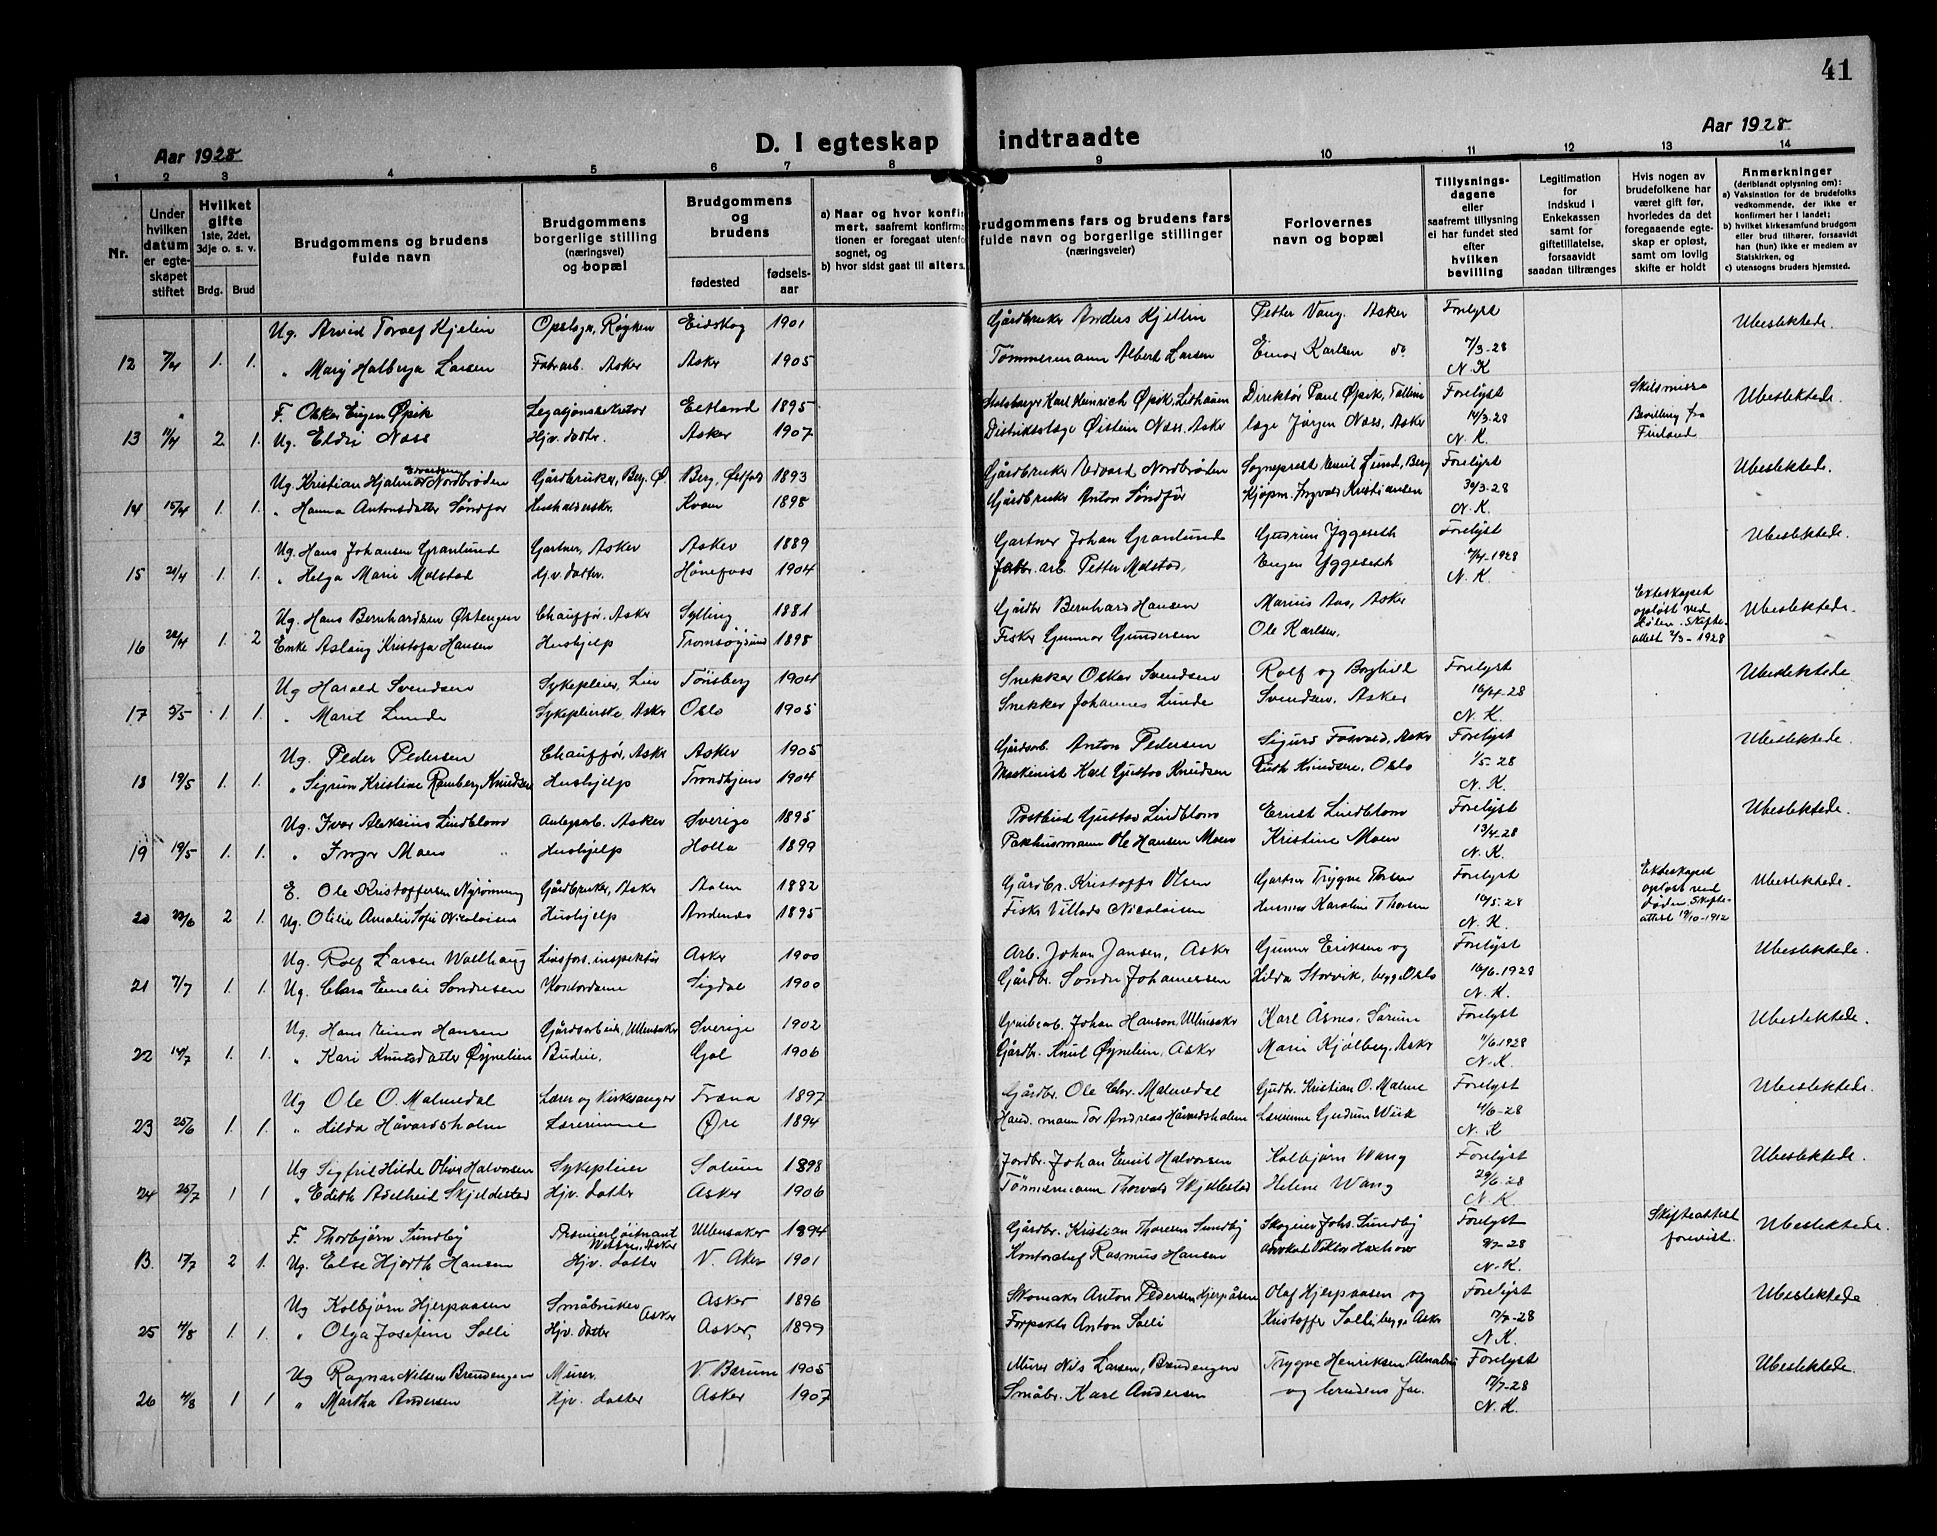 41
D. I egteskap indtraadte
Aar 1928
Aar 1928
1 2 3 4 5 6 7 8 9 10 11 12 13 14
Nr.
Under hvilken datum er egteskapet stiftet
Hvilket gifte 1ste, 2det, 3dje o. s. v.
Brdg. Brud
Brudgommens og brudens fulde navn
Brudgommens borgerlige stilling (næringsvei) og bopæl
Brudgommens og brudens
fødested
fødselsaar
a) Naar og hvor konfirmert, saafremt konfirmationen er foregaat utenfor sognet, og
b) hvor sidst gaat til alters.
Brudgommens fars og brudens fars fulde navn og borgerlige stillinger (næringsveier)
Forlovernes navn og bopæl
Tillysningsdagene eller saafremt tillysning ei har fundet sted efter hvilken bevilling
Legitimation for indskud i Enkekassen samt for giftetillatelse, forsaavidt saadan tiltrænges
Hvis nogen av brudefolkene har været gift før, hvorledes da det foregaaende egteskap er opløst, samt om lovlig skifte er holdt
Anmerkninger (deriblandt oplysning om):
a) Vaksination for de brudefolks vedkommende, der ikke er konfirmert her i landet;
b) hvilket kirkesamfund brudgom eller brud tilhører, forsaavidt han (hun) ikke er medlem av Statskirken, og
c) utensogns bruders hjemsted.
Ug. Arvid Toralf Kjelin Opslagn, Røyken Eidskog 1901 Gårdbruker Anders Kjellin Petter Vang. Asker Forelyst Ubeslektede.
12 7/4 1. 1. " Mary Halberga Larsen Fabrarb. Asker Asker 1905 Tømmermann Albert Larsen Einar Karlsen do 7/3-28 N. K
F. Oskar Eugen Øpik Legasjonssekretær Eetland 1895 Karl Heinrich Øpik, Direktør Paul Øpik, Tallinn Forelyst Skilsmisse Ubeslektede.
13 11/4 2 1. Ug. Eldri Næss Hjv. datter. Asker 1907 Distriktslæge Øistein Næss. Asker læge Jørgen Næss, Asker 14/3-28 N. K. Bevilling fra Finland
Ug. Kristian Hjalmar Edvardsen Nordbrøden Gårdbruker, Berg. Ø. Berg, Østfold 1893 Gårdbruker Edvard Nordbrøden Sogneprest Emil Lund, Berg Forelyst Ubeslektede.
14 15/4 1. 1. " Hanna Antonsdatter Søndfør Husholderske. Kvam 1898 Gårdbruker Anton Søndfør Kjøpm. Ingvald Kristiansen 30/3-28 N. K.
Ug. Hans Johansen Granlund Gartner, Asker Asker 1889 Gartner Johan Granlund Gudrun Yggeseth Forelyst Ubeslektede.
15 21/4 1. 1. " Helga Marie Molstad Hjv. datter. Hønefoss 1904 Fabr. arb. Petter Molstad. Eugen Yggeseth 7/4-1928 N. K.
Ug. Hans Bernhardsen Østengen Chauffør, Asker Sylling 1881 Gårdbr Bernhard Hansen Marius Aas, Asker Ekteskapet opløst ved døden. Skifteattest 2/3-1928 Ubeslektede.
16 22/4 1. 2 Enke Aslaug Kristofa Hansen Hushjelp Tromsøysund 1898 Fisker Gunnar Gundersen Ole Karlsen.
Ug Harald Svendsen Sykepleier, Lier Tønsberg 1904 Snekker Oskar Svendsen Rolf og Borghild Forelyst Ubeslektede
17 3/5 1. 1. " Marit Lunde Sykepleierske, Asker Oslo 1905 Snekker Johannes Lunde Svendsen, Asker 16/4-28 N. K.
Ug. Peder Pedersen Chauffør, Asker Asker 1905 Gårdsarb. Anton Pedersen Sigurd Asker Forelyst Ubeslektede.
18 19/5 1. 1. " Sigrun Kristine Ramberg Knudsen Hushjelp Trondhjem 1904 Maskinist Karl Gustav Knudsen Ruth Knudsen, Oslo 1/5-28 N. K.
Ug. Ivar Aleksius Lindblom Anlegsarb. Asker Sverige 1895 Postbud Gustav Lindblom Ernst Lindblom Forelyst Ubeslektede.
19 19/5 1. 1. " Inger Moen Hushjelp Holla 1899 Pakhusmann Ole Hansen Moen Kristine Moen 13/4-28 N. K.
E. Ole Kristoffersen Nyrønning Gårdbruker, Asker Aalen 1882 Gårdbr. Kristoffer Olsen Gartner Trygve Thorsen Forelyst Ekteskapet opløst ved døden. Skifteattest 19/10-1912 Ubeslektede.
20 23/6 2 1. Ug. Olilie Amalie Sofie Nicolaisen Hushjelp Andenes 1895 Fisker Villads Nicolaisen Karoline Thorsen 10/5-28 N. K.
Ug. Rolf Larsen Wallhaug Livsfors. inspektør Asker 1900 Arb. Johan Jansen, Asker Gunnar Eriksen og Forelyst Ubeslektede.
21 7/7 1. 1. Ug. Clara Emelie Søndresen Kontordame Sigdal 1900 Gårdbr. Søndre Johannessen Hilda Storvik, begge Oslo 16/6-1928 N. K.
Ug. Hans Einar Hansen Gårdsarbeider, Ullensaker Sverige 1902 Johan Hanson, Ullensaker Karl Åsnes. Sørum Forelyst Ubeslektede.
22 14/7 1. 1. " Kari Knutsdatter Øynelien Budeie. Gol 1906 Gårdbr. Knut Øynelien, Asker Marie Kjølberg, Asker 11/6 1928 N. K.
Ug Ole O. Malmedal Lærer og Kirkesanger Fræna 1897 Gårdbr. Ole Chr. Malmedal Gudbr. Kristian O. Malme Forelyst Ubeslektede.
23 25/6 1. 1. " Hilda Håvardsholm Lærerinne Øre 1894 Hand. mann Tor Andreas Håvardsholm Lærerinne Gudrun Wiik 11/6-28 N. K
Ug Sigfril Hilde Oliver Halvorsen Sykepleier Solum 1898 Jordbr. Johan Emil Halvorsen Kolbjørn Wang Forelyst Ubeslektede.
24 25/7 1 1 " Edith Adelheid Skjeldestad Hjv. datter Asker 1906 Tømmermann Thorvald Skjellestad Helene Wang 29/6-28 N. K.
F. Thorbjørn Sundby Premierløitnant Asker Ullensaker 1894 Gårdbr. Kristian Thoresen Sundby Skogeier Johs. Sundby Forelyst Skifteattest forevist. Ubeslektede.
13. 17/7 2 1. Ug. Else Hjorth Hansen Hjv. datter V. Aker 1901 Kontorchef Rasmus Hansen Advokat Viktor 9/7-28 N. K.
Ug Kolbjørn Hjerpaasen Småbruker Asker Asker 1896 Skomaker Anton Pedersen Hjerpåsen Olaf Hjerpaasen og Forelyst Ubeslektede
25 4/8 1. 1. " Olga Josefine Solli Hjv. datter Asker, 1899 Forpakter Anton Solli Kristoffer Solli begge Asker 17/7-28 N. K.
Ug Ragnar Nilsen Brendengen Murer. V. Bærum 1905 Murer Nils Larsen, Brendengen Trygve Henriksen, Forelyst Ubeslektede.
26 4/8 1 1 " Martha Andersen Hjv. datter Asker 1907 Småbr. Karl Andersen og brudens far 17/7-28 N. K.